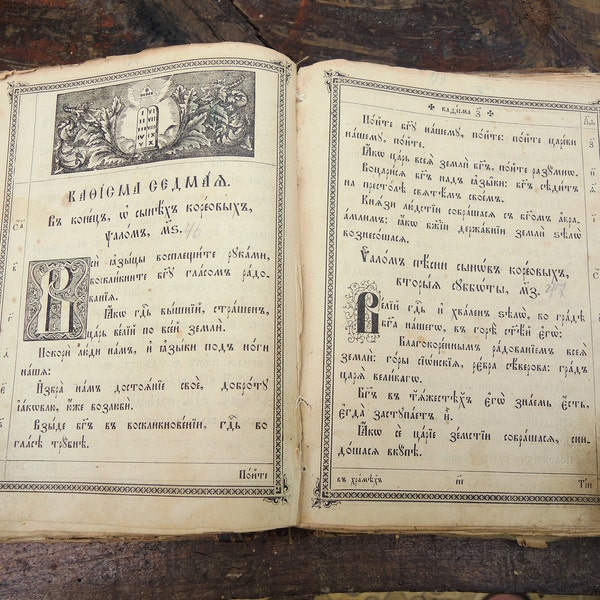 КАѲІСМА СЕДМАѦ.
Въ конєцъ, ѡ сынѣхъ корєовыхъ,
ѱаломъ, м҃ѕ. 46
Вси ꙗзыцы восплещите руками,
воскликните бг҃у гласомъ радо-
ванїѧ.
Ꙗкѡ гдⷭ҇ь вышнїй, страшенъ,
царь велїй по всей земли.
Покори люди намъ, и ꙗзыки подъ ноги
нашѧ:
Избра намъ достоѧнїе свое, доброту
іаковлю, юже возлюби.
Взыде бг҃ъ въ воскликновенїи, гдⷭ҇ь во
гласѣ трубнѣ.
Пойте
каѳісма з҃
Пойте бг҃у нашему, пойте: пойте цареви
нашему, пойте.
Ꙗкѡ царь всеѧ земли бг҃ъ, пойте разумнѡ.
Воцарисѧ бг҃ъ надъ ꙗзыки: бг҃ъ сѣдитъ
на престолѣ свѧтѣмъ своемъ.
Кнѧзи людстїи собрашасѧ съ бг҃омъ авра-
амлимъ: ꙗкѡ бж҃їи державнїи земли ѕѣлѡ
вознесошасѧ.
Ѱаломъ пѣсни сынѡвъ кореовыхъ,
вторыѧ субботы, м҃з. 47
Велїй гдⷭ҇ь и хваленъ ѕѣлѡ, во градѣ
бг҃а нашегѡ, въ горѣ ст҃ѣй єгѡ:
Благокореннымъ радованїемъ всеѧ
земли: горы сїѡнскїѧ, ребра сѣверова: градъ
царѧ великагѡ.
Бг҃ъ въ тѧжестѣхъ єгѡ знаемь єсть,
єгда заступаетъ и҆̀.
Ꙗкѡ се царїе земстїи собрашасѧ, сни-
дошасѧ вкупѣ.
въ храмѣхъ
Тїи